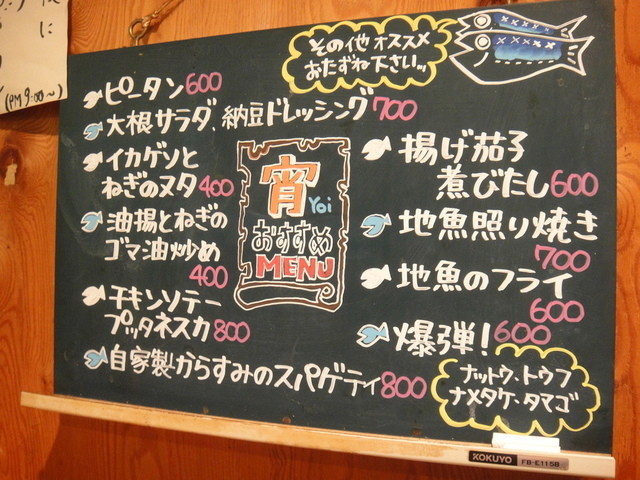 (PM 9:00〜)
その他 オススメ
おたずね下さいッ
ピータン 600
大根サラダ、納豆ドレッシング 700
イカゲソと
ねぎのヌタ 400
油揚とねぎの
ゴマ油炒め
400
チキンソテー
プッタネスカ 800
自家製からすみのスパゲティ 800
宵
Yoi
おすすめ
MENU
揚げ茄子
煮びたし 600
地魚照り焼き
700
地魚のフライ
600
爆弾! 600
ナットウ、トウフ
ナメタケ・タマゴ
KOKUYO FB-E115B